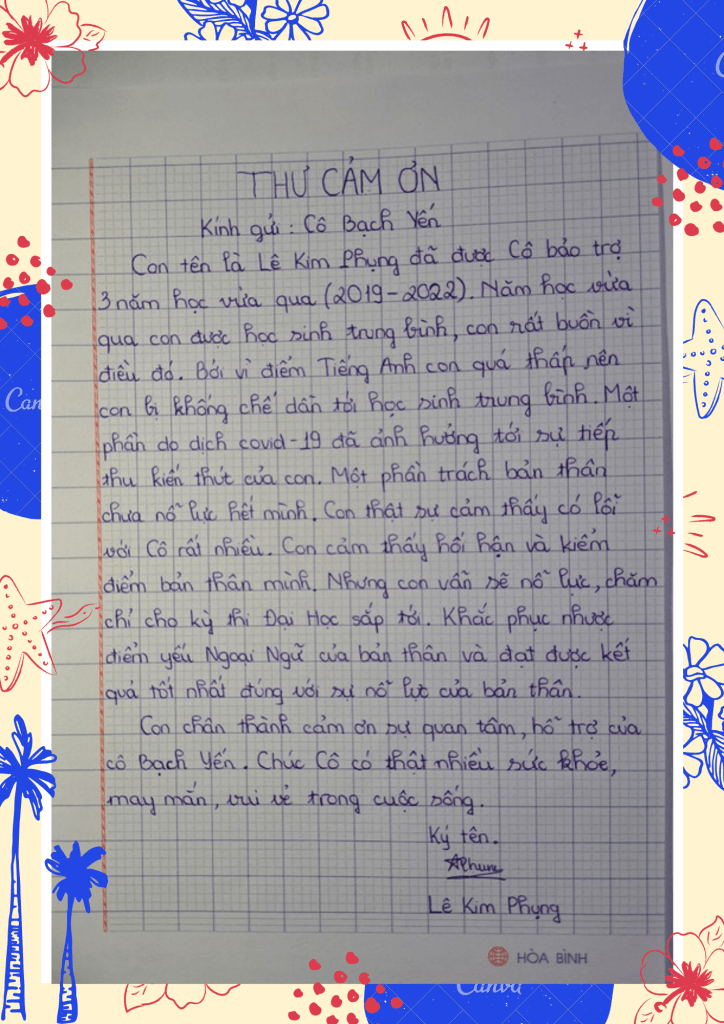 THƯ CẢM ƠN
Kính gửi : Cô Bạch Yến
Con tên là Lê Kim Phụng đã được Cô bảo trợ
3 năm học vừa qua (2019-2022). Năm học vừa
qua con được học sinh trung bình, con rất buồn vì
điều đó. Bởi vì điểm Tiếng Anh con quá thấp nên
con bị khống chế dẫn tới học sinh trung bình. Một
phần do dịch covid-19 đã ảnh hưởng tới sự tiếp
thu kiến thứt của con. Một phần trách bản thân
chưa nỗ lực hết mình. Con thật sự cảm thấy có lỗi
với Cô rất nhiều. Con cảm thấy hối hận và kiểm
điểm bản thân mình. Nhưng con vẫn sẽ nỗ lực, chăm
chỉ cho kỳ thi Đại Học sắp tới. Khắc phục nhược
điểm yếu Ngoại Ngữ của bản thân và đạt được kết
quả tốt nhất đúng với sự nỗ lực của bản thân.
Con chân thành cảm ơn sự quan tâm, hỗ trợ của
cô Bạch Yến. Chúc Cô có thật nhiều sức khỏe,
may mắn, vui vẻ trong cuộc sống.
Ký tên.
Lê Kim Phụng
HÒA BÌNH
Canva